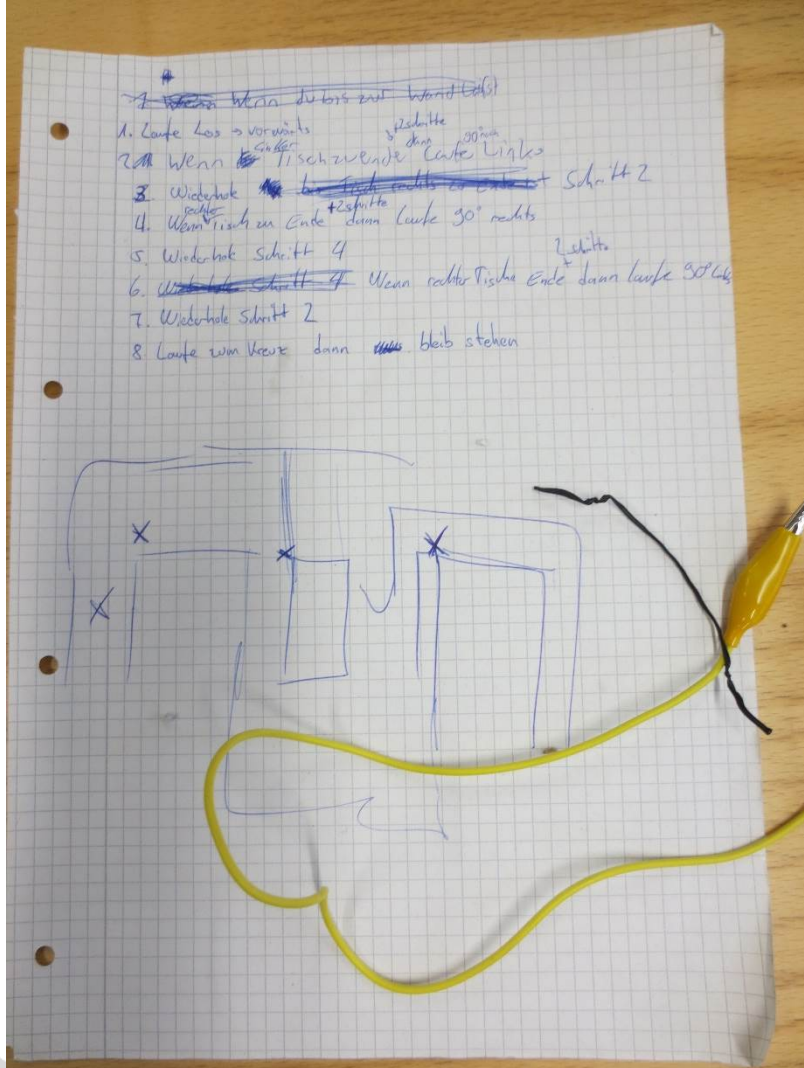 1. Wenn du bis zur Wand
1. Laufe Los → vorwärts
2. Wenn linker Tisch zuende + 2 schritte dann Laufe 90° nach Links
3. Wiederhole Schritt 2
4. Wenn rechter Tisch zu Ende + 2 schritte dann laufe 90° rechts
5. Wiederhole Schritt 4
6. Wenn rechter Tisch Ende + 2 schritte dann laufe 90° Links
7. Wiederhole Schritt 2
8 Laufe zum Kreuz dann bleib stehen